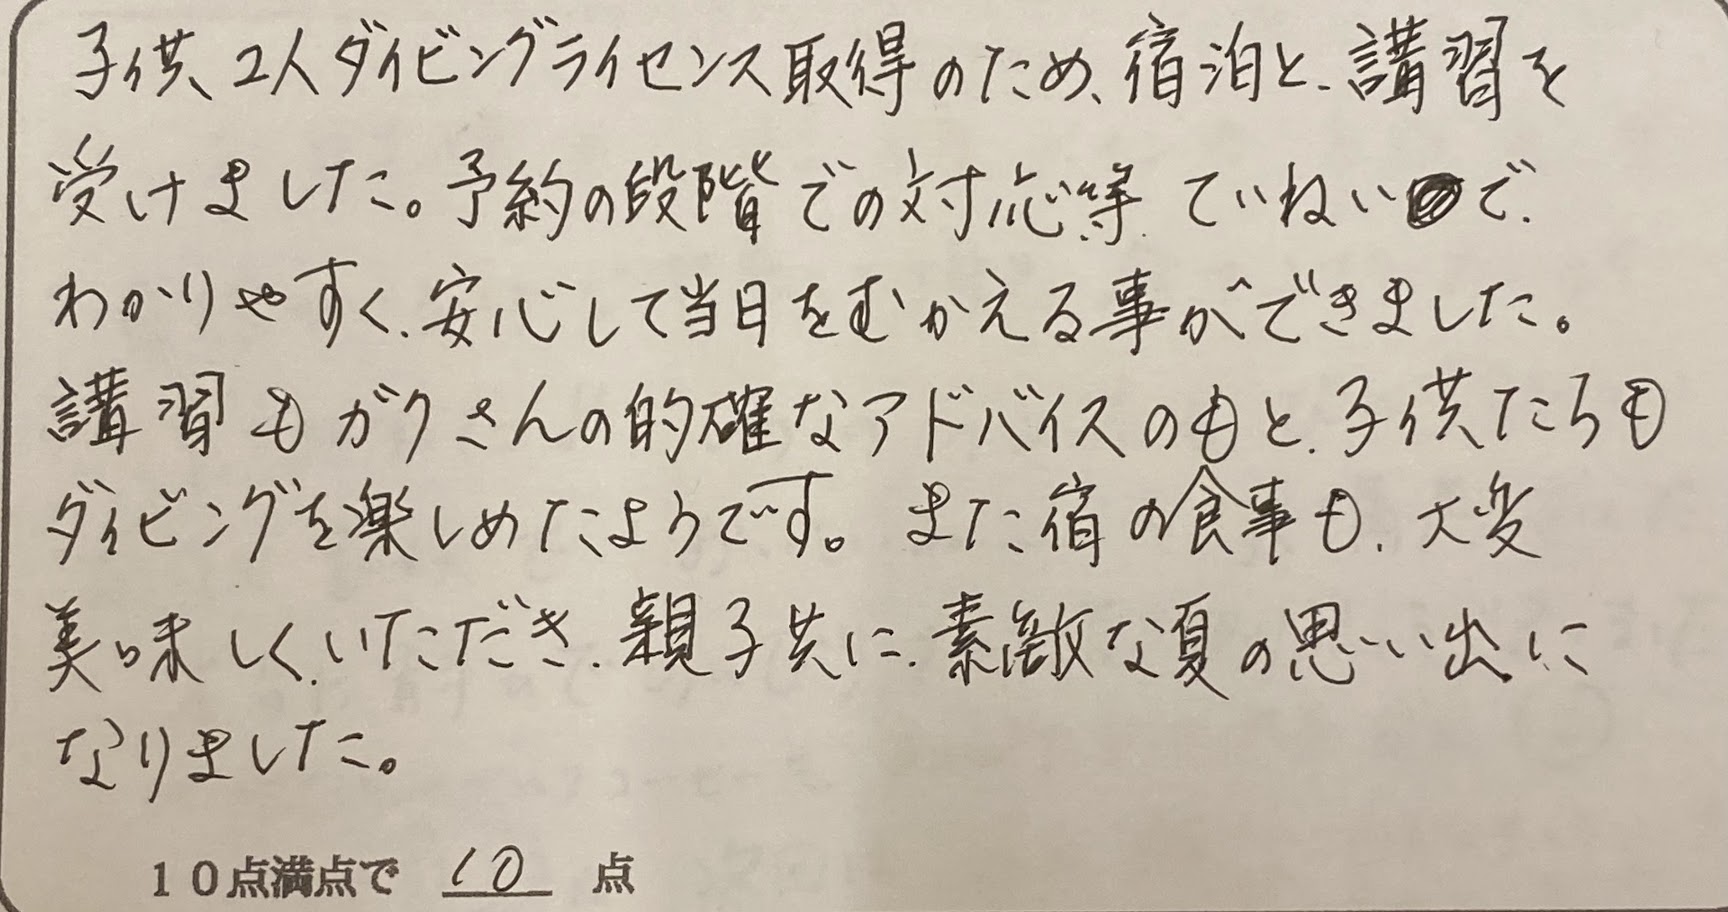 子供、2人ダイビングライセンス取得のため、宿泊と、講習を
受けました。予約の段階での対応等、ていねいで、
わかりやすく、安心して当日をむかえる事ができました。
講習もガクさんの的確なアドバイスのもと、子供たちも
ダイビングを楽しめたようです。また宿の食事も、大変
美味しく、いただき、親子共に、素敵な夏の思い出に
なりました。
10点満点で 10 点